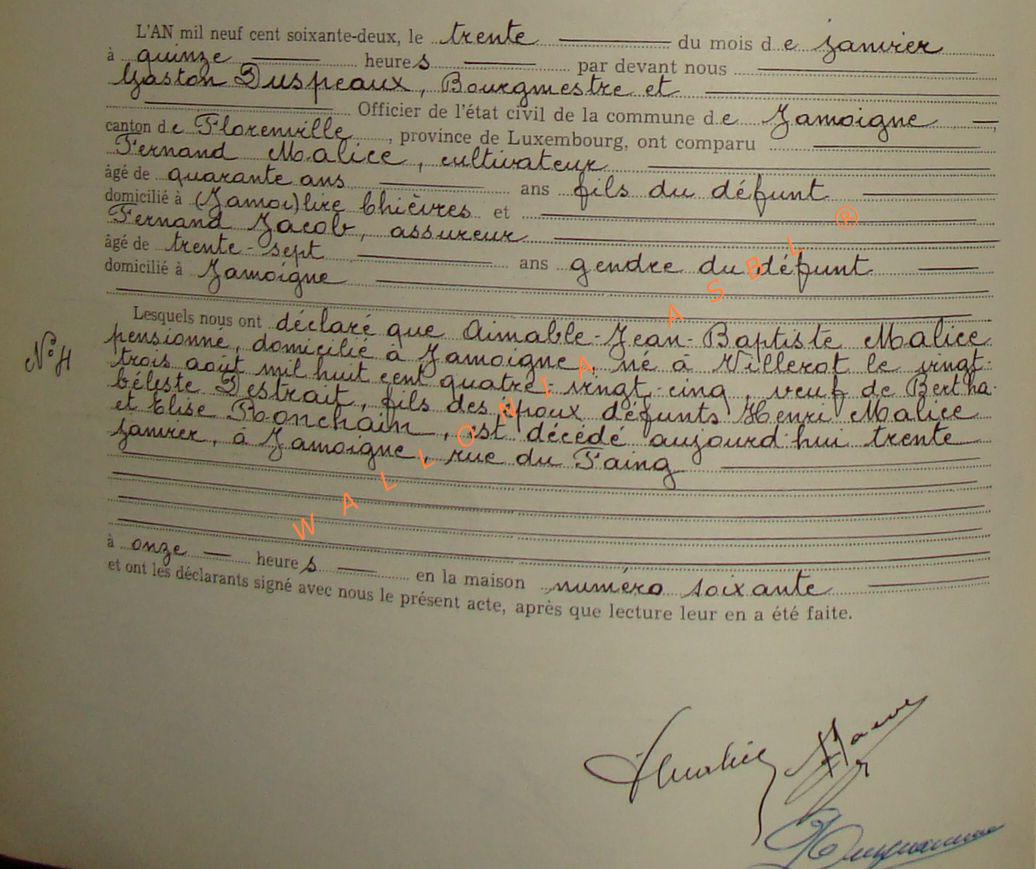 L'AN mil neuf cent soixante-deux, le trente du mois de janvier
à quinze heures par devant nous
Gaston Duspeaux, Bourgmestre et
Officier de l'état civil de la commune de Jamoigne
canton de Florenville, province de Luxembourg, ont comparu
Fernand Malice, cultivateur
âgé de quarante ans ans fils du défunt
domicilié à (Jamoi) lire Chièvres et
Fernand Jacob, assureur
âgé de trente-sept ans gendre du défunt
domicilié à Jamoigne
Lesquels nous ont déclaré que Aimable-Jean-Baptiste Malice
N° 4
pensionné, domicilié à Jamoigne, né à Villerot le vingt-
trois août mil huit cent quatre-vingt-cinq, veuf de Bertha-
Céleste Destrait, fils des époux défunts Henri Malice
et Elise Ronchain, est décédé aujourd'hui trente
janvier, à Jamoigne, rue du Faing
à onze heures en la maison numéro soixante
et ont les déclarants signé avec nous le présent acte, après que lecture leur en a été faite.
WALLONIA ASBL ®